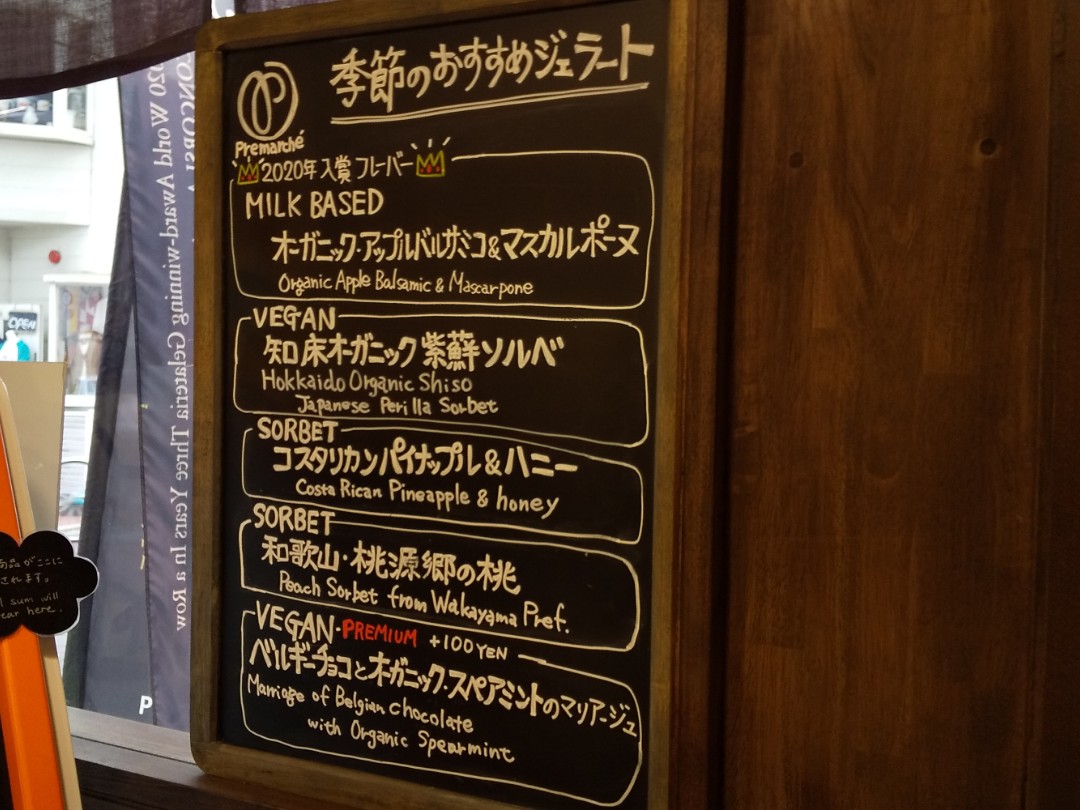 季節のおすすめジェラート
Premarché
2020年 入賞 フレーバー
MILK BASED
オーガニック・アップルバルサミコ&マスカルポーヌ
Organic Apple Balsamic & Mascarpone
VEGAN
知床オーガニック紫蘇ソルベ
Hokkaido Organic Shiso
Japanese Perilla Sorbet
SORBET
コスタリカンパイナップル&ハニー
Costa Rican Pineapple & honey
SORBET
和歌山・桃源郷の桃
Peach Sorbet from Wakayama Pref.
VEGAN・PREMIUM +100YEN
ベルギーチョコとオーガニック・スペアミントのマリアージュ
Marriage of Belgian chocolate
with Organic Spearmint
2020 World Award-winning Gelateria Three Years In a Row
OPEN
P
商品がここに
されます。
sum will
ear here.